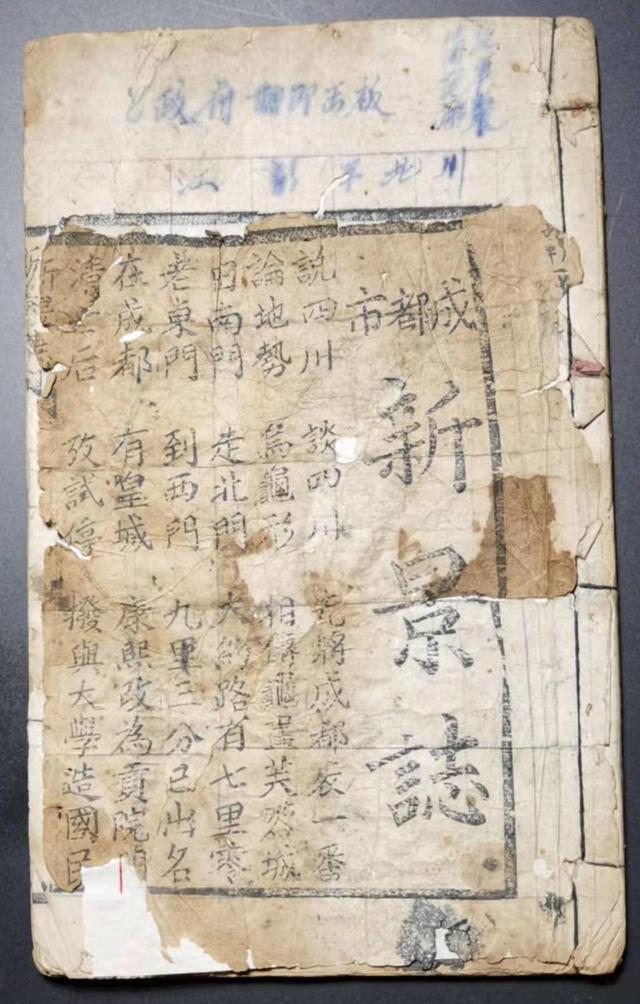 政府翻印出板
成都市
新景誌
說四川 談四川 先將成都表一番
論地勢 為龜形 相傳龜畫芙蓉城
由南門 走北門 大約路有七里零
老東門 到西門 九里三分已出名
在成都 有皇城 康熙改為貢院門
清 后 攷試停 撥與大學造國民